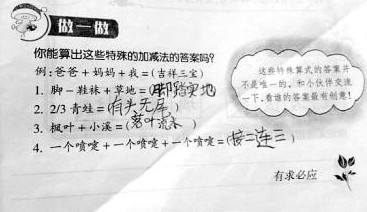 做一做
你能算出这些特殊的加减法的答案吗?
例:爸爸+妈妈+我=(吉祥三宝)
1. 脚－鞋袜+草地=(脚踏实地)
2. 2/3 青蛙=(有头无尾)
3. 枫叶+小溪=(落叶流水)
4. 一个喷嚏+一个喷嚏+一个喷嚏=(接二连三)
这些特殊算式的答案并
不是唯一的,和小伙伴交流
一下,看谁的答案最有创意!
有求必应